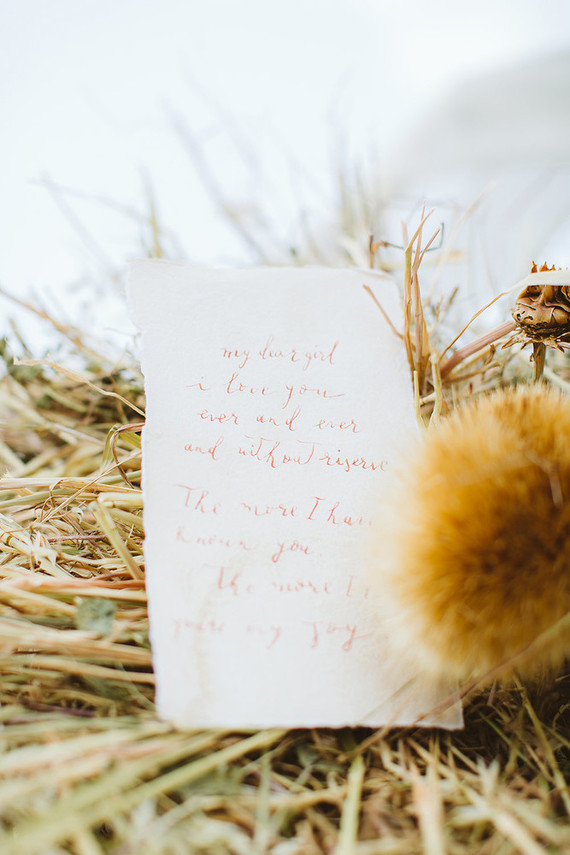 my dear girl
i love you
ever and ever
and without riserve
The more I hav
known you
The more I
my joy